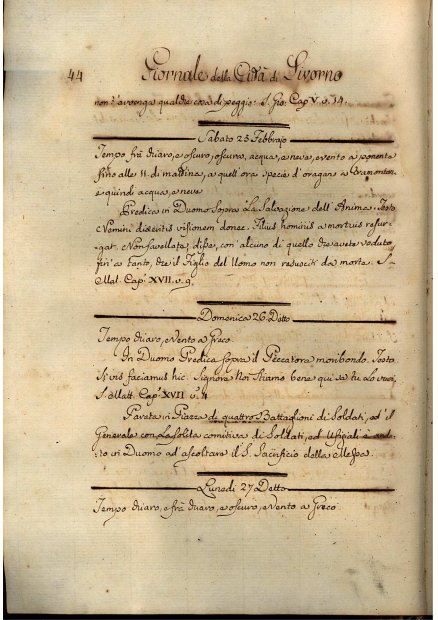 44 Giornale della Città di Livorno
non t'avvenga qualche cosa di peggio. S. Gio: Cap V. v. 14.
Sabato 25 Febbrajo
Tempo frà chiaro, e oscuro, oscuro, acqua, e neve, e vento a ponente
fino alle 11. di mattina, a quell'ora specie d'oragano a Tramontana
e quindi acqua, e neve
Predica in Duomo sopra La Salvazione dell'Anima. Testo
Nemini dixeritis visionem donec. Filius hominis a mortuis resur
gat. Non favellate, disse, con alcuno di quello che avete veduto
fin a tanto, che il Figlio del Uomo non resusciti da morte. S.
Matt. Cap. XVII. v. 9.
Domenica 26. Detto
Tempo chiaro, e Vento a Greco
In Duomo Predica sopra il Peccatore moribondo. Testo
Si vis faciamus hic. Signore Noi stiamo bene qui se tu Lo vuoi,
S. Matt. Cap XVII v. 4
Parata in Piazza di quattro Battaglioni di Soldati, ed il
Generale con La solita comitiva di Soldati, ed Ufiziali è anda-
to in Duomo ad ascoltare il S. Sacrificio della Messa.
Lunedi 27 Detto
Tempo chiaro, e frà chiaro, e oscuro, e Vento a Greco